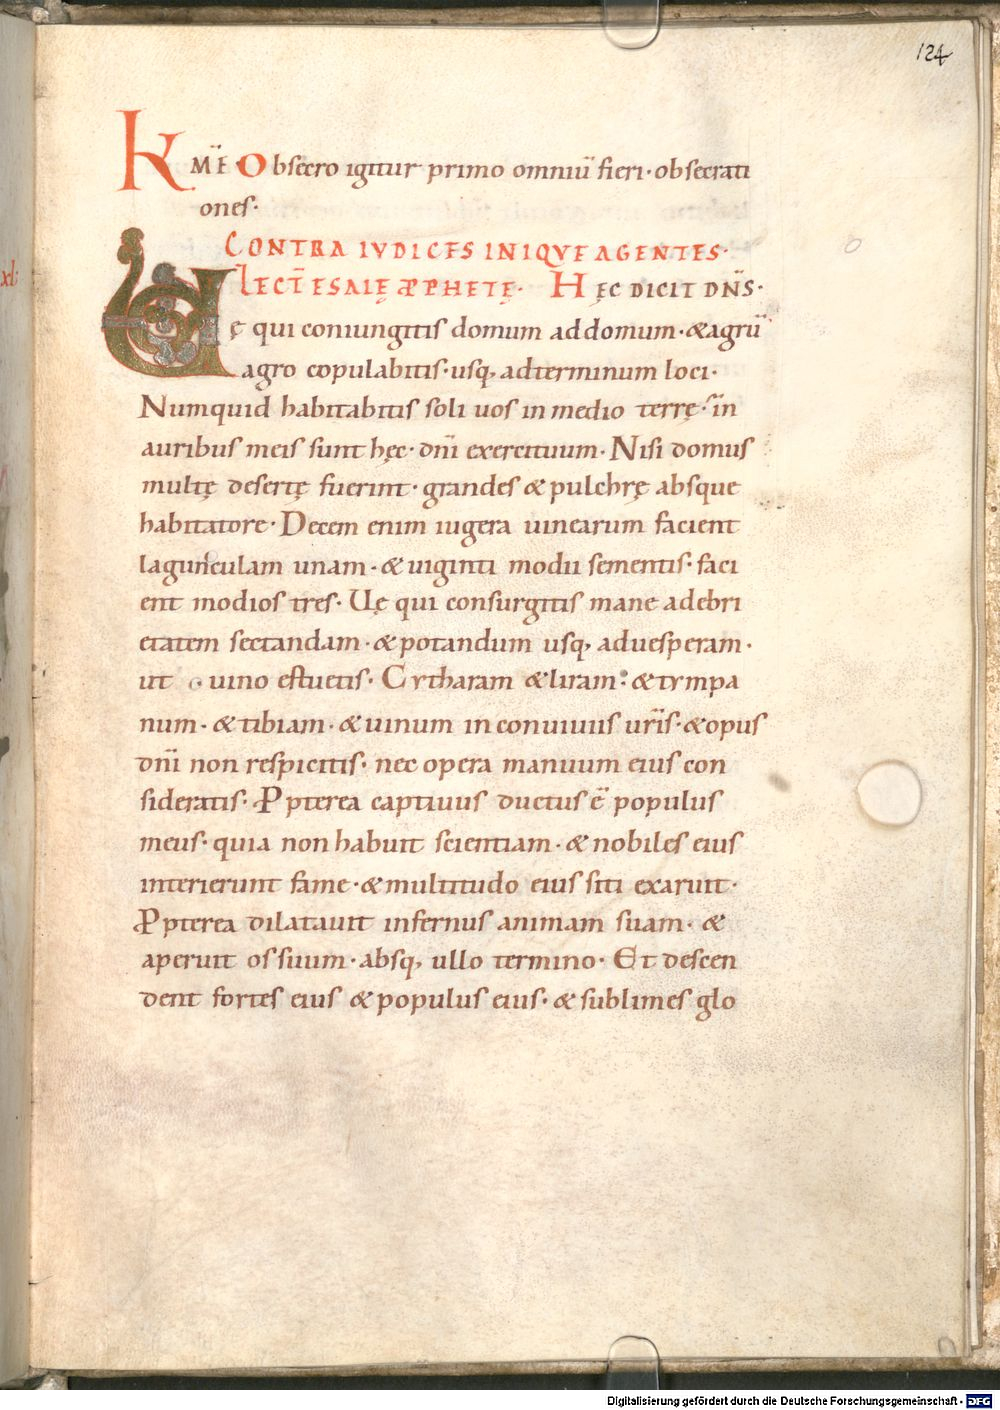 124
K M̄E Obsecro igitur primo omniū fieri· obsecrati
ones·
CONTRA IVDICES INIQVE AGENTES·
LECT̄ ESAIĘ P̱PHETĘ· HĘC DICIT DN̄S·
UĘ qui coniungitis domum addomum· &agrū
agro copulabitis· usq, adterminum loci·
Numquid habitabitis soli uos in medio terrę· in
auribus meis sunt hęc· dn̄i exercituum· Nisi domus
multę desertę fuerint· grandes & pulchrę absque
habitatore· Decem enim iugera uinearum facient
lagunculam unam· & uiginti modii sementis· faci
ent modios tres· Uę qui consurgitis mane adebri
etatem sectandam· & potandum usq, aduesperam·
ut uino estuetis· Cytharam &liram· &tympa
num· &tibiam· &uinum in conuiuiis ur̄is· &opus
dn̄i non respicitis· nec opera manuum eius con
sideratis· P̱pterea captiuus ductus ē populus
meus· quia non habuit scientiam· & nobiles eius
interierunt fame· &multitudo eius siti exaruit·
P̱pterea dilatauit infernus animam suam· &
aperuit os suum· absq, ullo termino· Et descen
dent fortes eius & populus eius· & sublimes glo
xl·
Digitalisierung gefördert durch die Deutsche Forschungsgemeinschaft - DFG